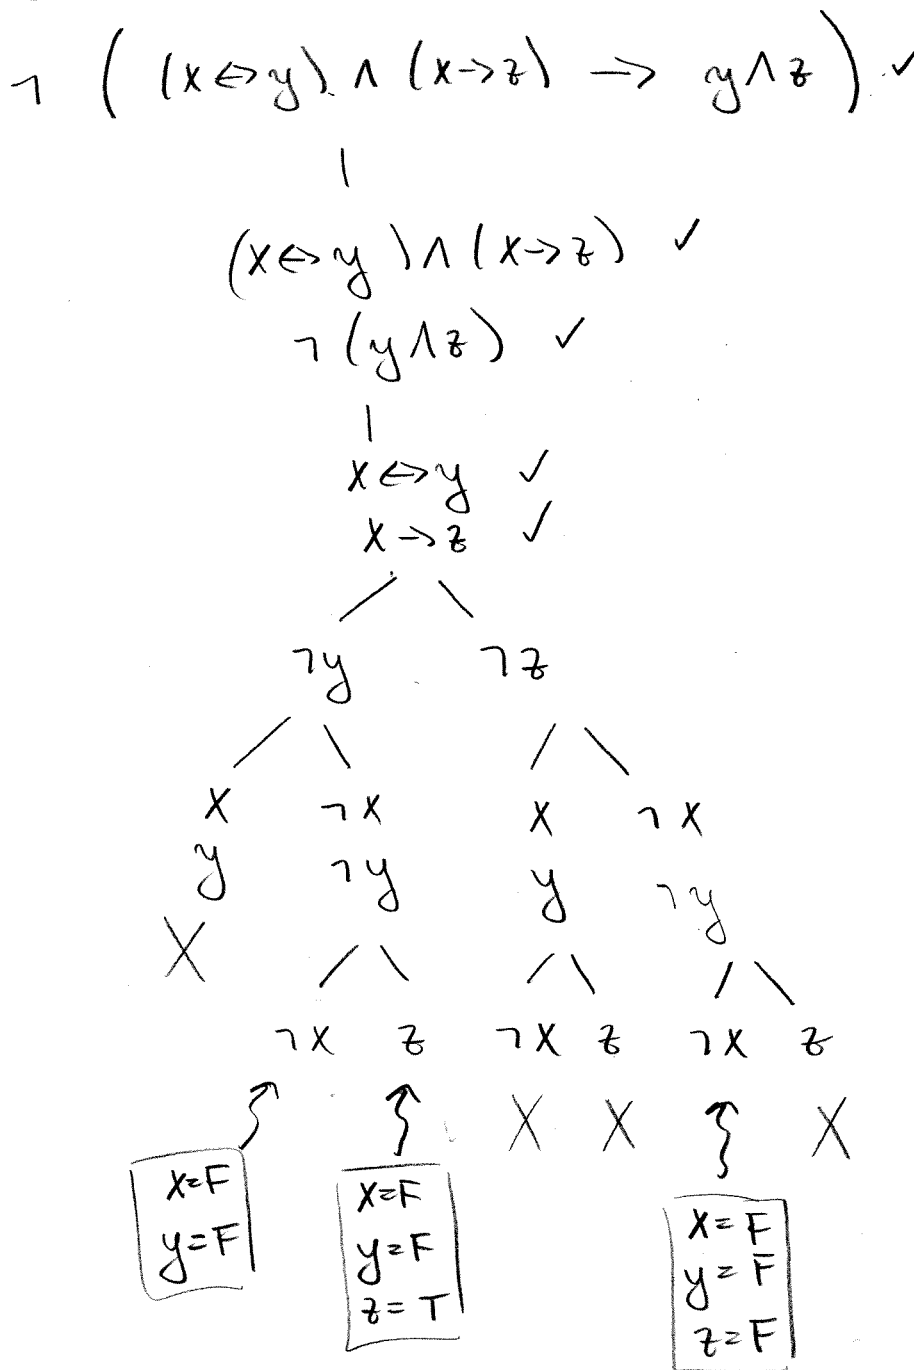 ¬ ( (x↔y) ∧ (x→z) → y∧z ) ✓
(x↔y) ∧ (x→z) ✓
¬ (y∧z) ✓
x↔y ✓
x→z ✓
¬y ¬z
x ¬x x ¬x
y ¬y y ¬y
X
¬x z ¬x z ¬x z
X X X
x=F
y=F
x=F
y=F
z=T
x=F
y=F
z=F